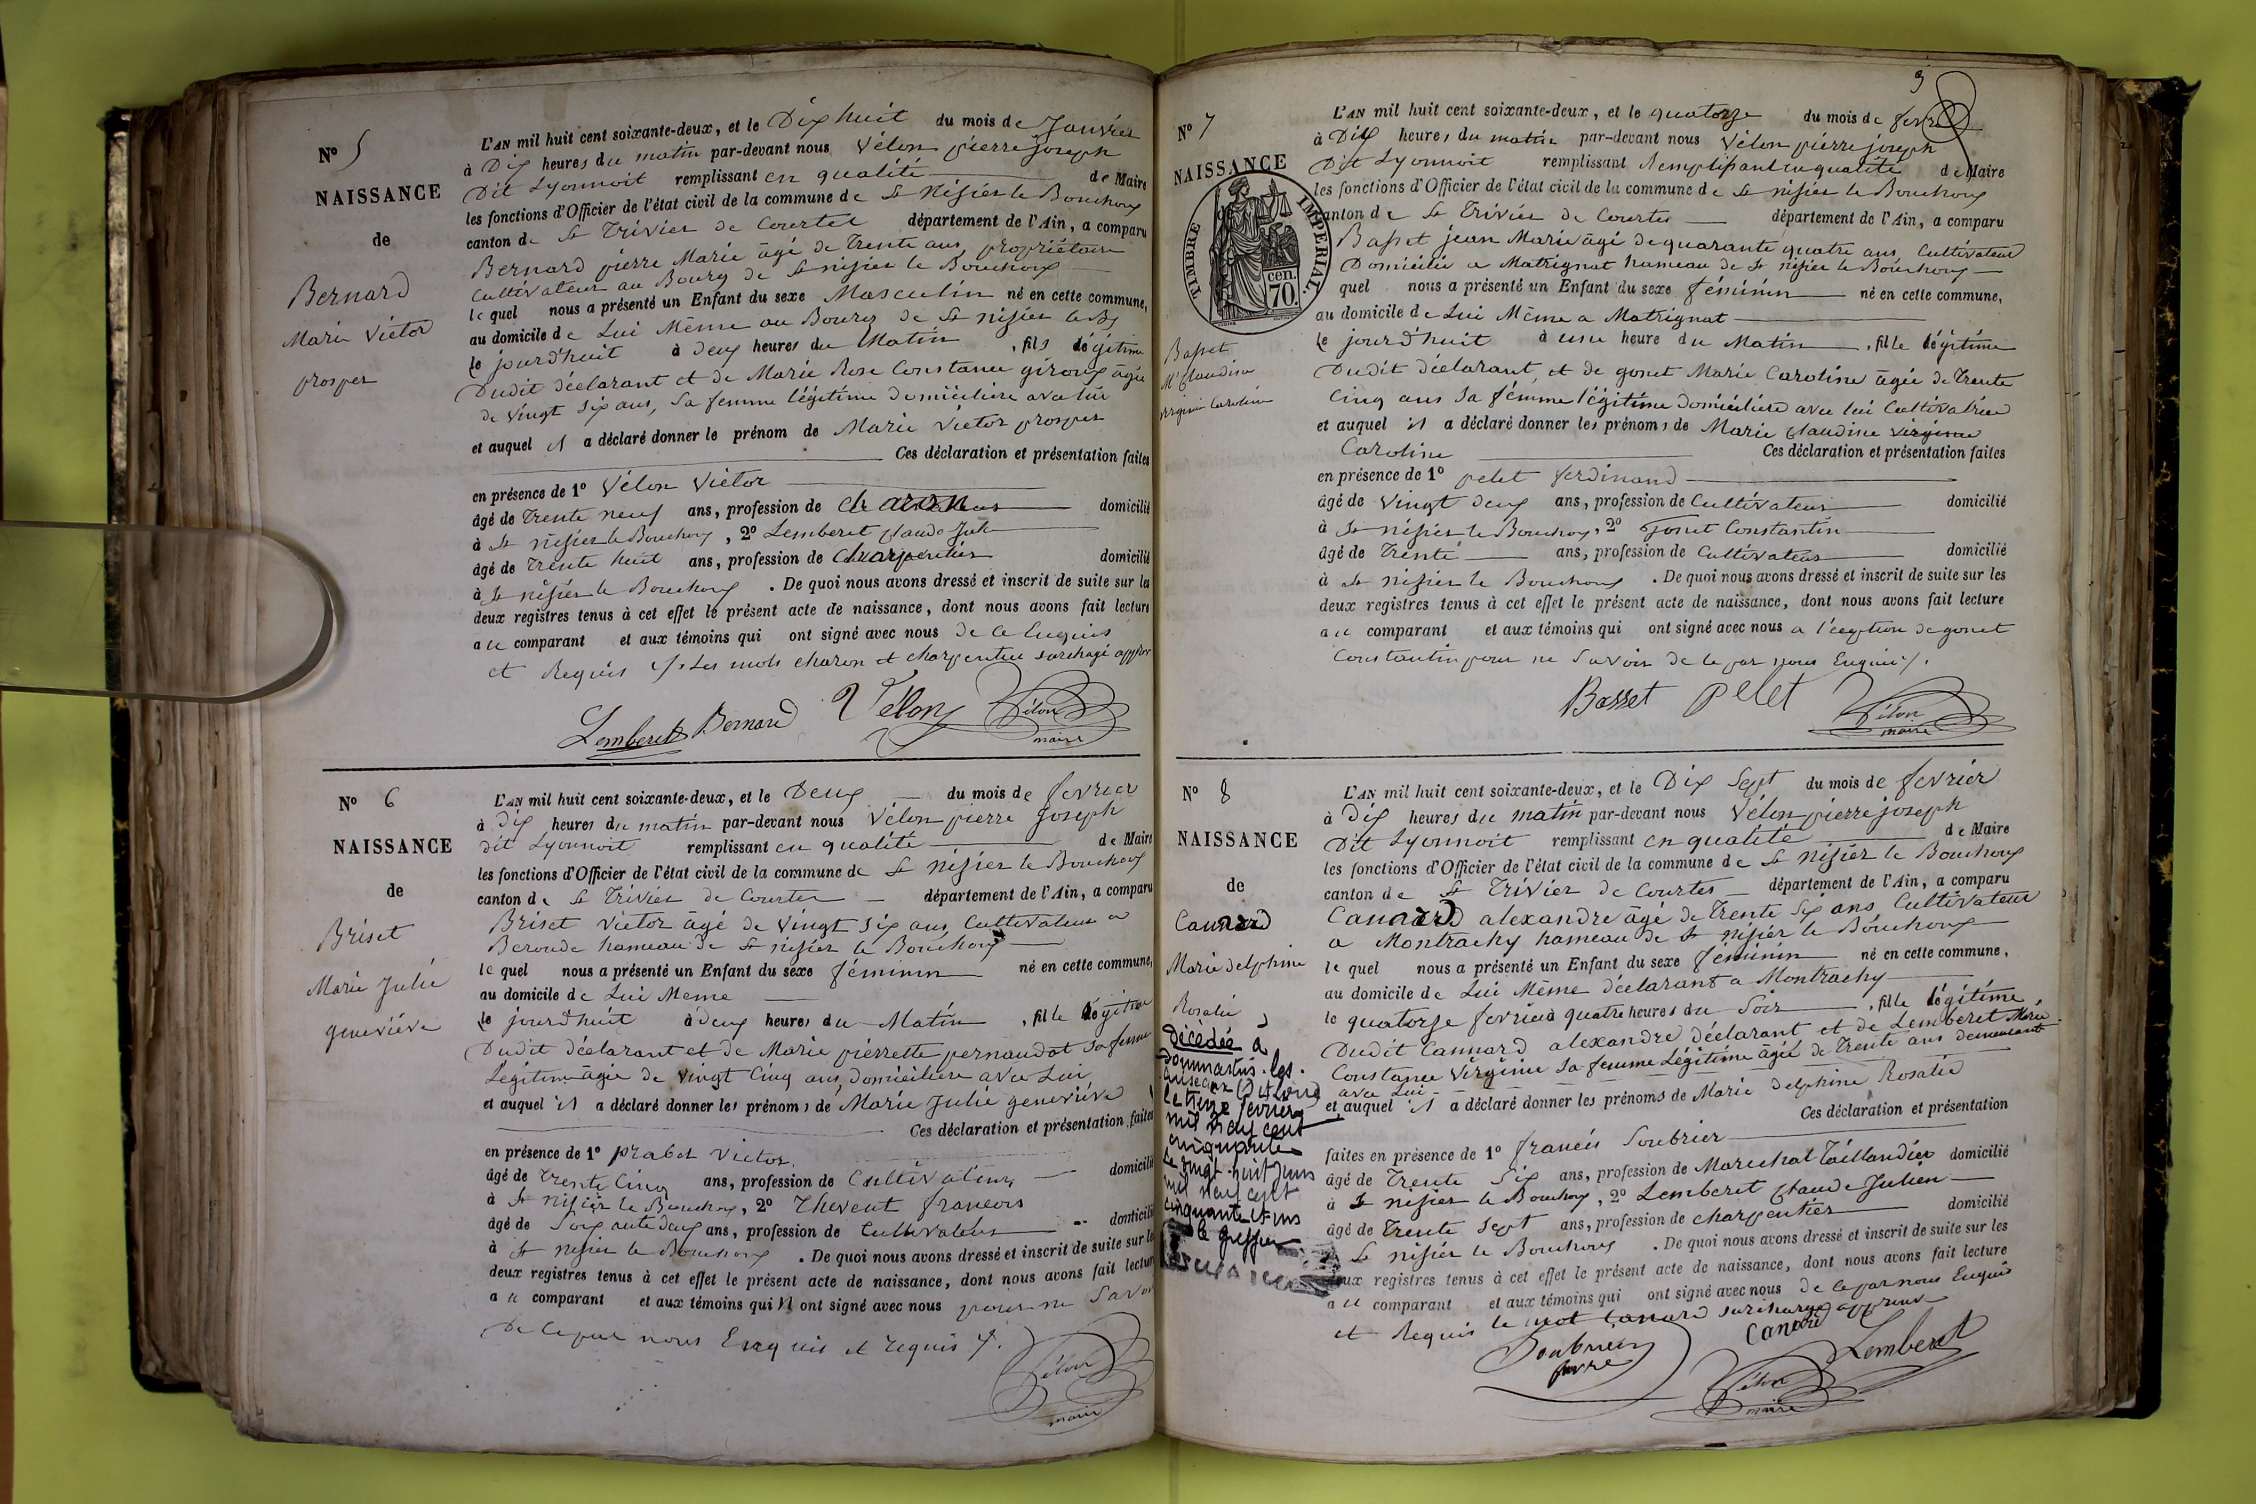 N° 5
NAISSANCE
de
Bernard
Marie Victor
prosper
L'AN mil huit cent soixante-deux, et le Dix huit du mois de Janvier
à Dix heures du matin par-devant nous Vélon pierre joseph
Dit Lyonnoit remplissant en qualité de Maire
les fonctions d'Officier de l'état civil de la commune de St Nisier le Bouchoux
canton de St Trivier de Courtes département de l'Ain, a comparu
Bernard pierre Marie âgé de Trente ans, propriétaire
Cultivateur au Bourg de St nisier le Bouchoux
lequel nous a présenté un Enfant du sexe Masculin né en cette commune,
au domicile de Lui Même au Bourg de St nisier le Bx
le jourd'huit à deux heures du Matin, fils légitime
Dudit déclarant et de Marie Rose Constance giroux âgée
de vingt six ans, sa femme légitime domiciliée avec lui
et auquel il a déclaré donner le prénom de Marie Victor prosper
Ces déclaration et présentation faites
en présence de 1° Vélon Victor
âgé de Trente neuf ans, profession de charon domicilié
à St nisier le Bouchoux, 2° Lemberet claude Jul
âgé de Trente huit ans, profession de charpentier domicilié
à St nisier le Bouchoux. De quoi nous avons dressé et inscrit de suite sur les
deux registres tenus à cet effet le présent acte de naissance, dont nous avons fait lecture
au comparant et aux témoins qui ont signé avec nous de ce Enquis
et Requis Les mots charon et charpentier surchagé
Lemberet Bernard Vélon Vélon
maire
N° 6
NAISSANCE
de
Briset
Marie Julie
geneviéve
L'AN mil huit cent soixante-deux, et le Deux du mois de fevrier
à Dix heures du matin par-devant nous Vélon pierre joseph
dit Lyonnoit remplissant en qualité de Maire
les fonctions d'Officier de l'état civil de la commune de St Nisier le Bouchoux
canton de St Trivier de Courtes département de l'Ain, a comparu
Briset Victor âgé de vingt six ans, Cultivateur a
Beronde hameau de St nisier le Bouchoux
lequel nous a présenté un Enfant du sexe féminin né en cette commune,
au domicile de Lui Meme
le jourd'huit à deux heures du Matin, fille légitime
Dudit déclarant et de Marie pierrette pernaudat sa femme
Légitime âgée de vingt Cinq ans, domiciliere avec Lui
et auquel il a déclaré donner les prénoms de Marie Julie geneviéve
Ces déclaration et présentation faites
en présence de 1° prabet Victor
âgé de Trente Cinq ans, profession de Cultivateur domicilié
à St nisier le Bouchoux, 2° Thevent francois
âgé de Soixante deux ans, profession de Cultivateur domicilié
à St nisier le Bouchoux. De quoi nous avons dressé et inscrit de suite sur les
deux registres tenus à cet effet le présent acte de naissance, dont nous avons fait lecture
au comparant et aux témoins qui n ont signé avec nous pour ne Savoir
De ce par nous Enquis et requis
Vélon
maire
3
N° 7
NAISSANCE
TIMBRE IMPERIAL.
cen.
70.
Basset
Mie Claudine
virginie Caroline
L'AN mil huit cent soixante-deux, et le quatorze du mois de
à Dix heures du matin par-devant nous Vélon pierre joseph
Dit Lyonnoit remplissant Remplissant en qualité de Maire
les fonctions d'Officier de l'état civil de la commune de St nisier le Bouchoux
canton de St Trivier de Courtes département de l'Ain, a comparu
Basset jean Marie âgé de quarante quatre ans Cultivateur
Domicilié a Matrignat hameau de St nisier le Bouchoux
quel nous a présenté un Enfant du sexe féminin né en cette commune,
au domicile de Lui Même a Matrignat
le jourd'huit à une heure du Matin, fille légitime
Dudit déclarant, et de gonet Marie Caroline âgée de Trente
Cinq ans Sa fémme légitime domiciliere avec lui Cultivatrice
et auquel il a déclaré donner les prénoms de Marie Claudine virginie
Caroline Ces déclaration et présentation faites
en présence de 1° pelet ferdinand
âgé de vingt deux ans, profession de Cultivateur domicilié
à St nisier le Bouchoux, 2° gonet Constantin
âgé de Trente ans, profession de Cultivateur domicilié
à St nisier le Bouchoux. De quoi nous avons dressé et inscrit de suite sur les
deux registres tenus à cet effet le présent acte de naissance, dont nous avons fait lecture
au comparant et aux témoins qui ont signé avec nous a l'éception de gonet
Constantin pour ne Savoir de ce par nous Enquis
Basset pelet Vélon
maire
N° 8
NAISSANCE
de
Canard
Marie delphine
Rosalie
Décédée à
Dommartin-les-
Cuiseaux (S et Loire)
le treize février
mil neuf cent
cinquante
Le vingt-huit juin
mil neuf cent
cinquante et un
le greffier
L'AN mil huit cent soixante-deux, et le Dix Sept du mois de fevrier
à Dix heures du matin par-devant nous Vélon pierre joseph
Dit Lyonnoit remplissant en qualité de Maire
les fonctions d'Officier de l'état civil de la commune de St Nisier le Bouchoux
canton de St Trivier de Courtes département de l'Ain, a comparu
Canard alexandre âgé de Trente Six ans Cultivateur
a Montrachy hameau de St nisier le Bouchoux
lequel nous a présenté un Enfant du sexe féminin né en cette commune,
au domicile de Lui Même déclarant a Montrachy
le quatorze fevrier à quatre heures du Soir, fille légitime
Dudit Cannard alexandre déclarant et de Lemberet Marie
Constance Virginie Sa femme Légitime âgée de Trente ans demeurant
avec Lui
et auquel il a déclaré donner les prénoms de Marie delphine Rosalie
Ces déclaration et présentation
faites en présence de 1° francis Soubrier
âgé de Trente Six ans, profession de Marechat Taillandier domicilié
à St nisier le Bouchoux, 2° Lemberet Claude Julien
âgé de Trente Sept ans, profession de charpentier domicilié
St nisier le Bouchoux. De quoi nous avons dressé et inscrit de suite sur les
deux registres tenus à cet effet le présent acte de naissance, dont nous avons fait lecture
au comparant et aux témoins qui ont signé avec nous de ce par nous Enquis
et Requis le mot Canard surchargé approuvé
Soubrier Canard Lemberet
Vélon
maire